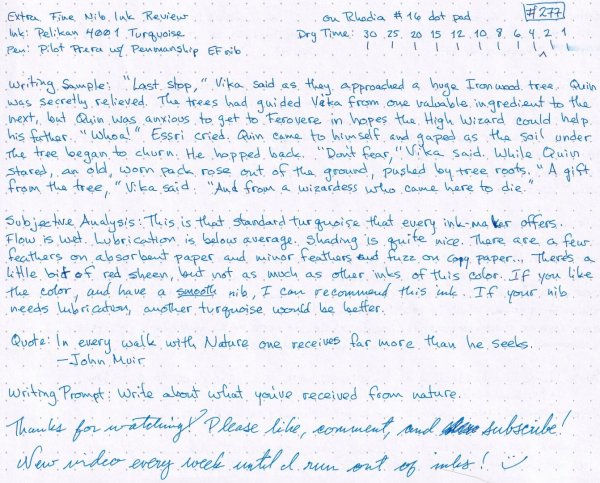 Extra Fine Nib Ink Review on Rhodia #16 dot pad #277
Ink: Pelikan 4001 Turquoise Dry Time: 30 25 20 15 12 10 8 6 4 2 1
Pen: Pilot Prera w/ Penmanship EF nib
Writing Sample: "Last stop," Vika said as they approached a huge Ironwood tree. Quin
was secretly relieved. The trees had guided Vika from one valuable ingredient to the
next, but Quin was anxious to get to Ferovere in hopes the High Wizard could help
his father. "Whoa!" Essri cried. Quin came to himself and gaped as the soil under
the tree began to churn. He hopped back. "Don't fear," Vika said. While Quin
stared, an old, worn pack rose out of the ground, pushed by tree roots. "A gift
from the tree," Vika said. "And from a wizardess who came here to die."
Subjective Analysis: This is that standard turquoise that every ink-maker offers.
Flow is wet. Lubrication is below average. Shading is quite nice. There are a few
feathers on absorbent paper and minor feathers and fuzz on copy paper... There's a
little bit of red sheen, but not as much as other inks of this color. If you like
the color, and have a smooth nib, I can recommend this ink. If your nib
needs lubrication, another turquoise would be better.
Quote: In every walk with Nature one receives far more than he seeks.
—John Muir
Writing Prompt: Write about what you've received from nature.
Thanks for watching! Please like, comment, and subscribe!
New video every week until I run out of inks!